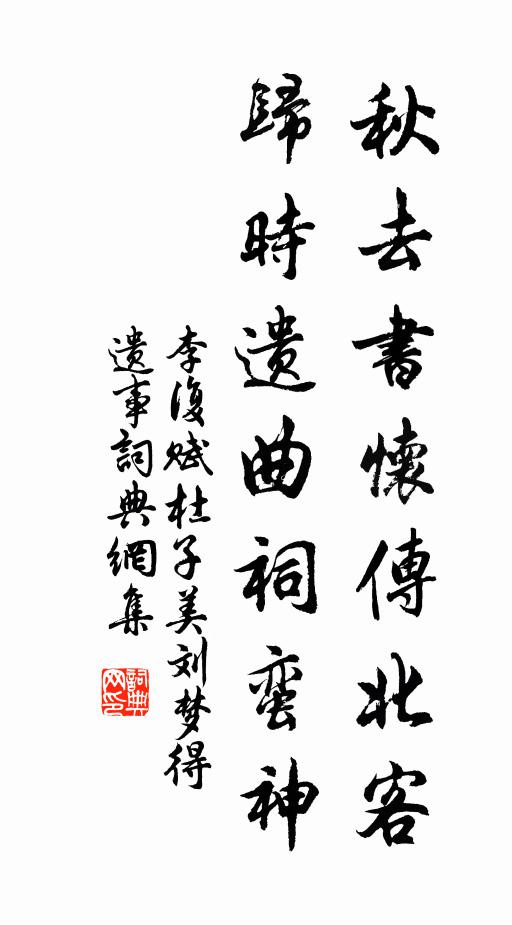 秋去書懷傳北客
歸時遺曲祠蛮神
李復赋杜子美刘梦得
遗事詞典網集
詞典网印